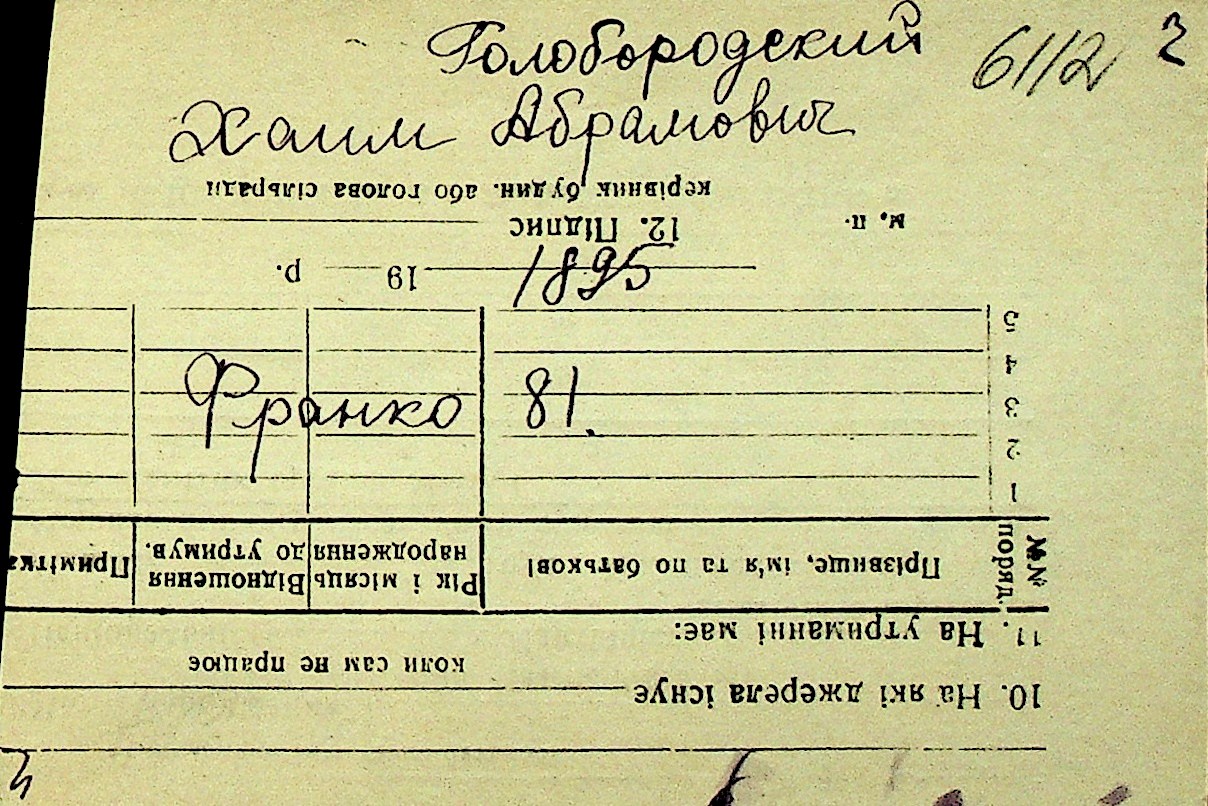 Голобородский 6112
Хаим Абрамович
1895
Франко 81.
10. На які джерела існує
коли сам не працює
11. На утриманні має:
№№ поряд. Прізвище, ім'я та по батькові Рік і місяць народження Відношення до утримув. Примітка
1
2
3
4
5
19 р.
м. п. 12. Підпис
керівник будин. або голова сільради